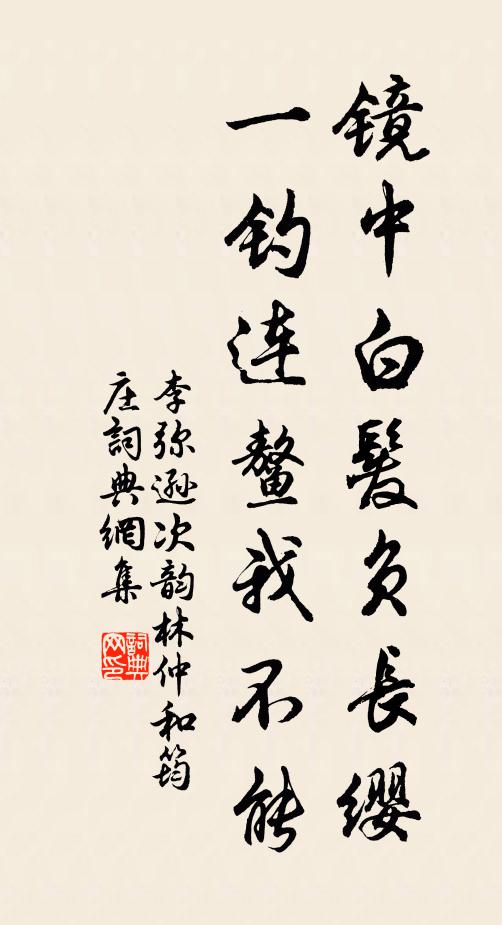 镜中白髮负長缨
一钓连鳌我不能
李弥逊次韵林仲和筠
庄詞典網集
詞典网印